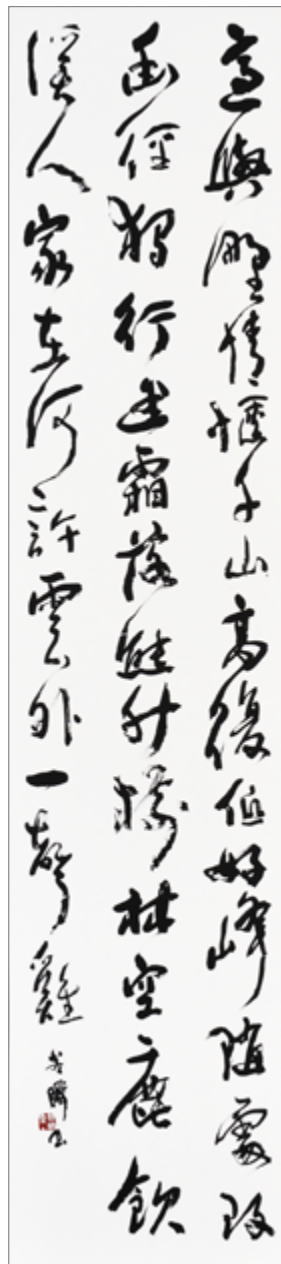 適與野情愜千山高復低好峰隨處改
幽徑獨行迷霜落熊升樹林空鹿飲
溪人家在何許雲外一聲雞